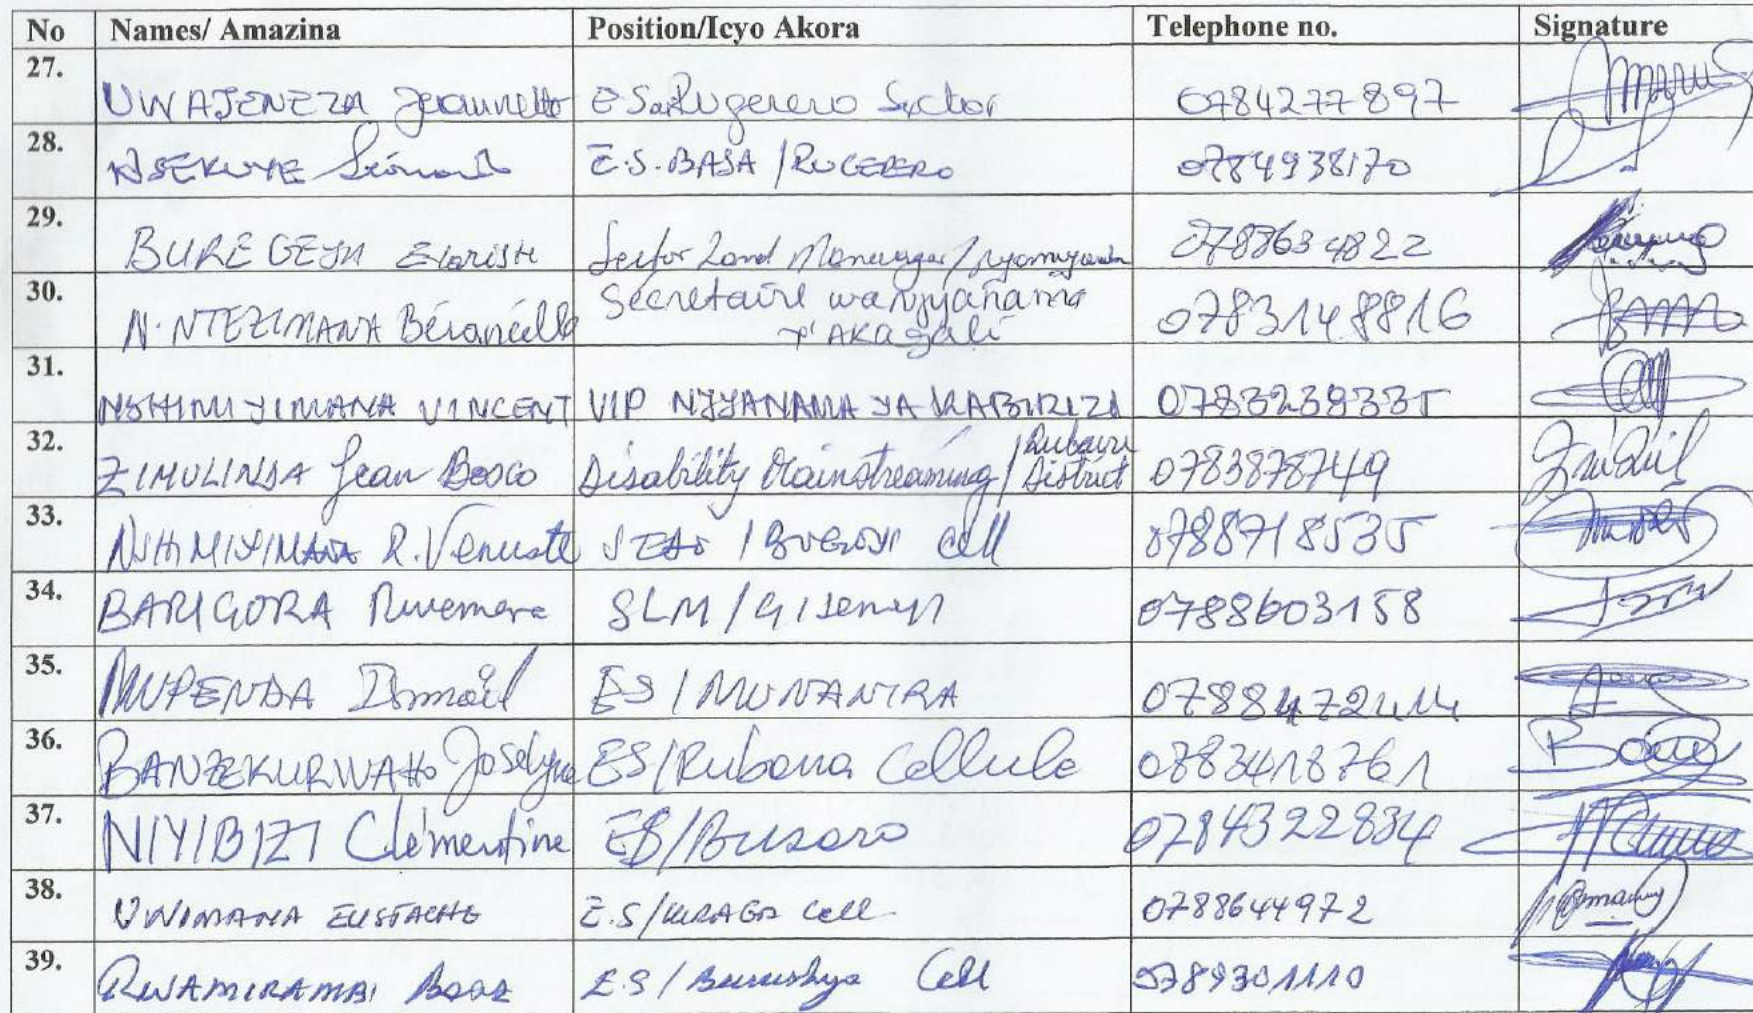 No Names/ Amazina Position/Icyo Akora Telephone no. Signature
27. UWAJENEZA Jeannette ES Rugerero Sector 0784277897
28. NSEKUYE E.S. BASA / RUGERERO 0784938170
29. BUREGEYA Evariste Sector Land Manager / Nyamyumba 0788634822
30. N. NTEZIMANA Bérancille Secretaire wa Njyanama y'Akagali 0783148816
31. NSHIMIYIMANA VINCENT VIP NJYANAMA YA KABIRIZI 0783239335
32. ZIMULINDA Jean Bosco Disability Mainstreaming / Rubavu District 0783878749
33. NSHIMIYIMANA R. Venuste / BUGOYI Cell 0788718535
34. BARIGORA SLM / GISENYI 0788603158
35. MUPENDA Ismaël ES / MUNANIRA
36. BANZEKURWAHO Joselyne ES/Rubona Cellule 0883418761
37. NIYIBIZI Clémentine ES/Busoro 0784322834
38. UWIMANA EUSTACHE E.S / Cell 0788644972
39. RWAMIRAMBI Boaz E.S / Burushya Cell 0789301110